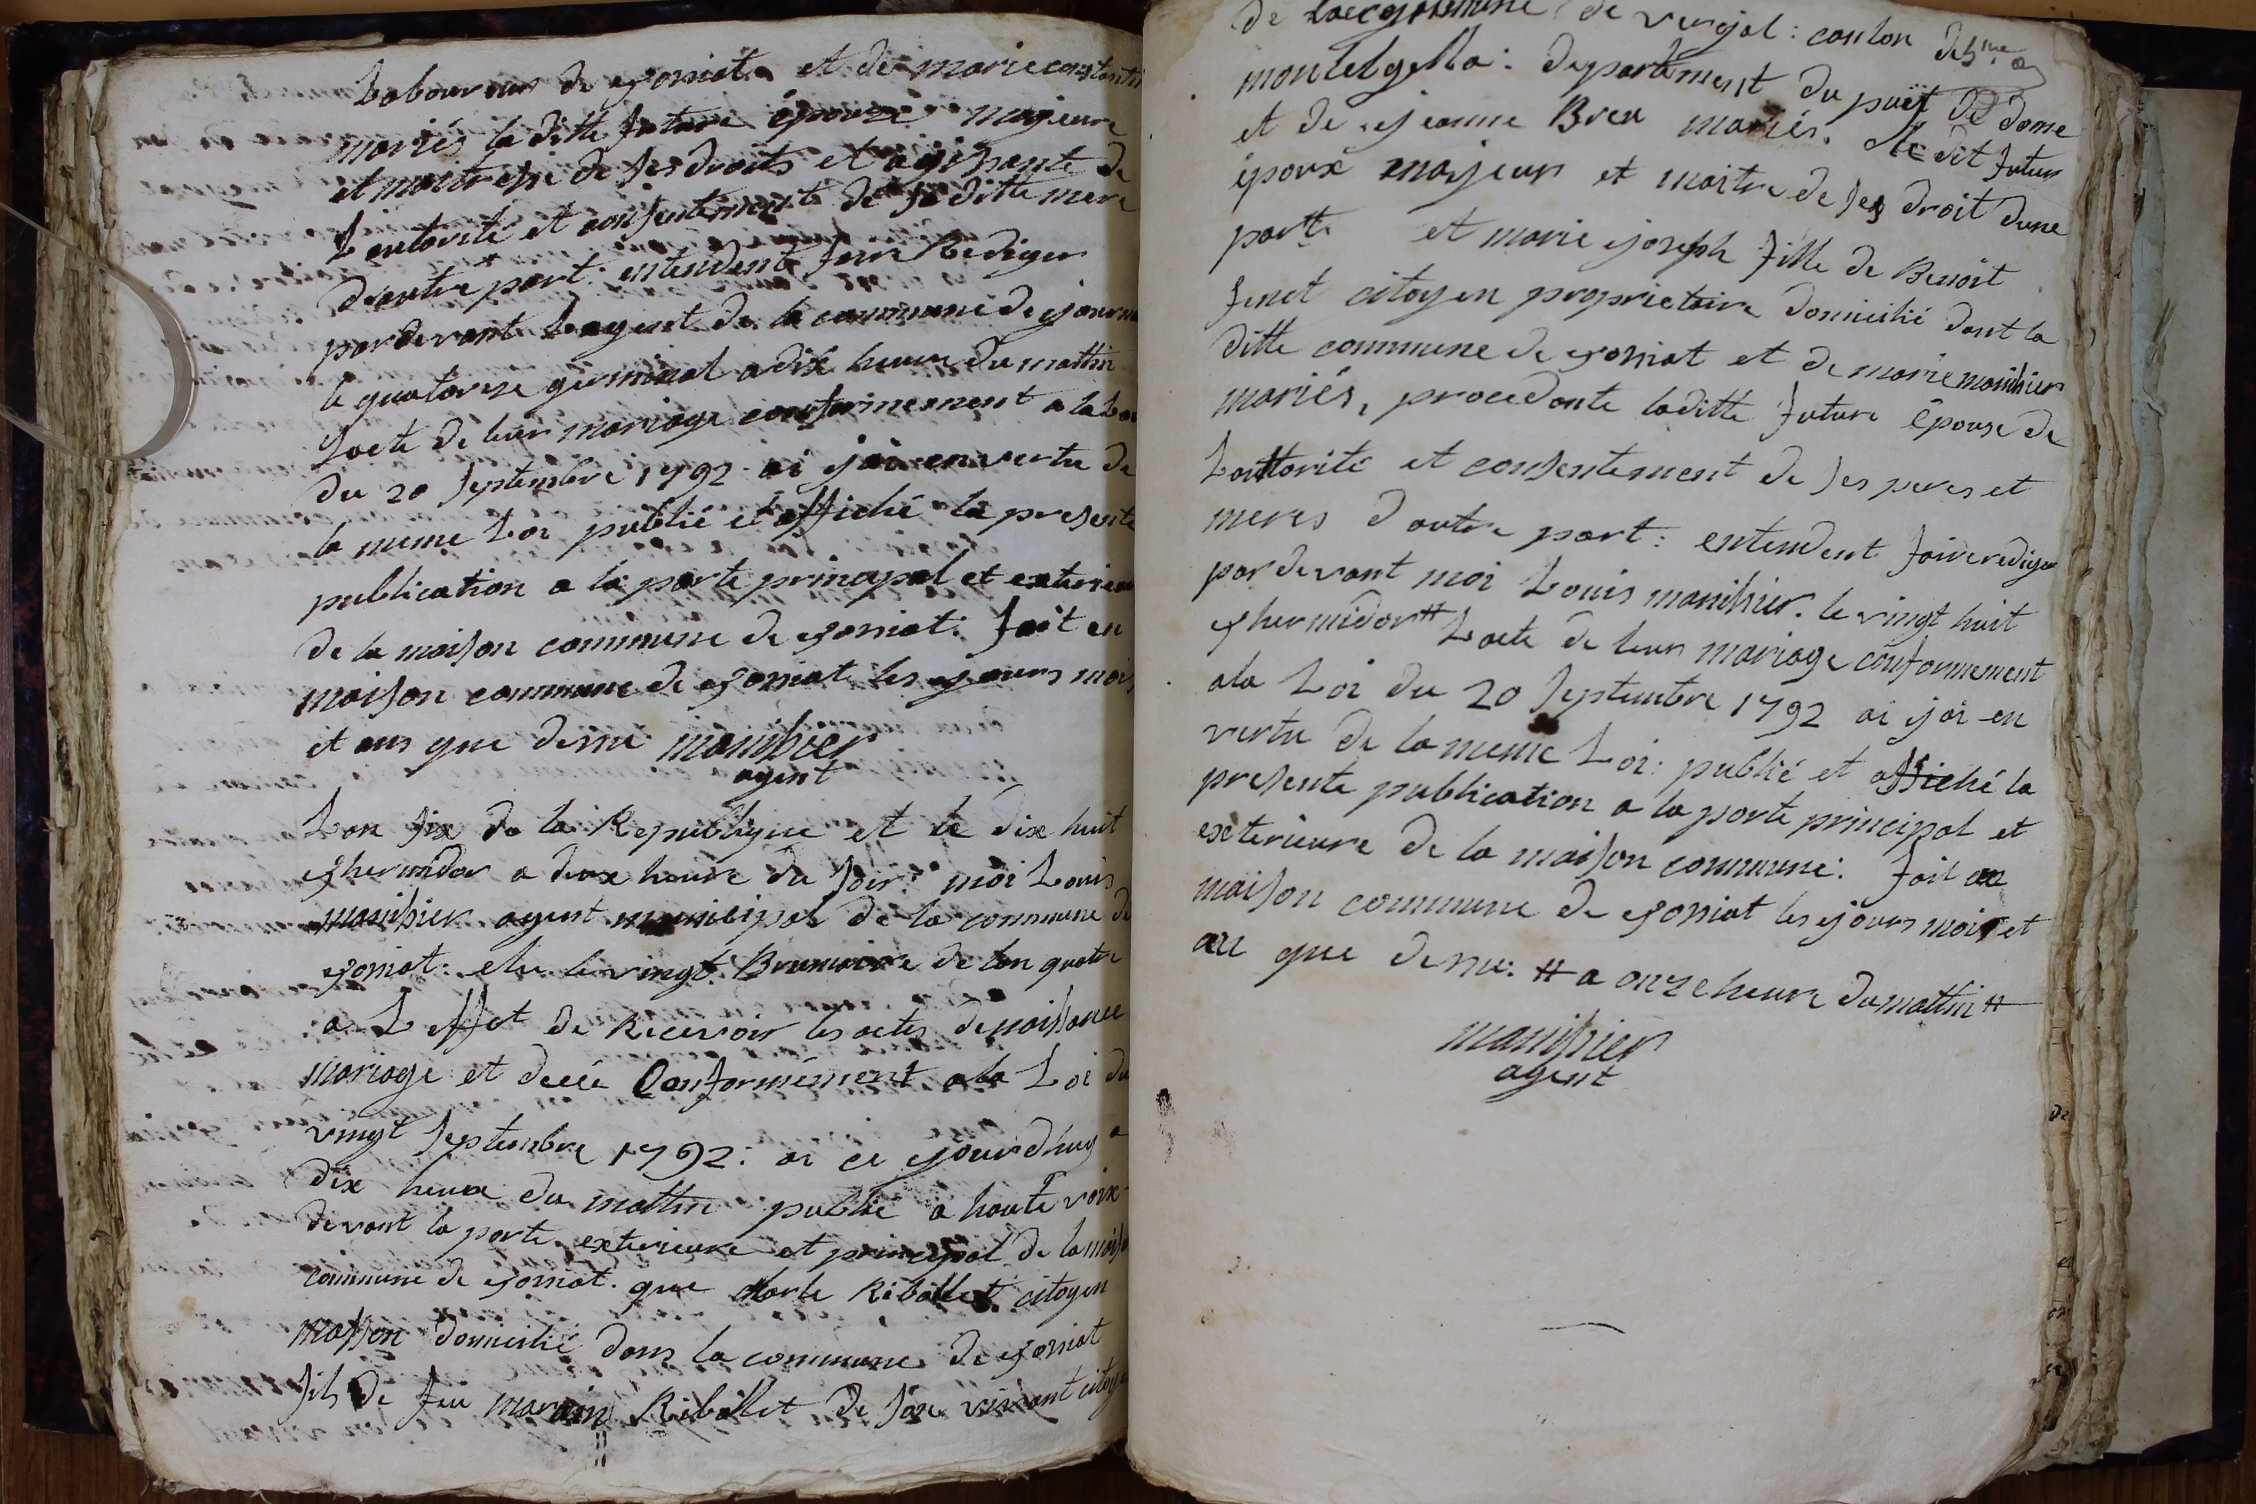 Laboureur de jorniat et de marie constantin
mariés la ditte future épouze majeure
et maitresse de ses droits et agissante de
Lautorité et consentement de sa ditte mere
dautre part: entendent faire Rediger
pardevant Lagent de la commune de
le quatorze germinal a dix heure du mattin
Lacte de leur mariage conformement a la Loi
du 20 septembre 1792 ai jai en vertu de
la meme Loi publié et affiché la presente
publication a la porte principal et exterieu
de la maison commune de jorniat: fait en
maison commune de jorniat les jours mois
et ans que dessu manissier
agent
Lan six de la Republique et le dix huit
thermidor a deux heure du soir: moi Louis
manissier agent municipal de la commune de
jorniat: elu le vingt Brumaire de lan quatre
a Leffet de Recevoir les actes de naissance
mariage et décé Conformément a la Loi du
vingt septembre 1792: ai ce jourdhuy a
dix heure du mattin publié a haute voix
devant la porte exterieure et principal de la maison
commune de jorniat. que charle Ribollet citoyen
masson domicilié dans la commune de jorniat
fils de feu Ribollet de son vivant citoyen
de la commune de vergol: canton de
: departement du puït de dome
et de jeanne Breu mariés. Le dit futur
époux majeur et maitre de ses droit dune
part et marie joseph fille de Benoit
Juset citoyen proprietaire domicilié dant la
ditte commune de jorniat et de marie manissier
mariés, procedante laditte future épouse de
Lauttorité et consentement de ses peres et
meres d autre part: entendent faire rediger
pardevant moi Louis manissier. le vingt huit
thermidor # Lacte de leur mariage conformement
a la Loi du 20 septembre 1792 ai jai en
vertu de la meme Loi: publié et affiché la
presente publication a la porte principal et
exterieure de la maison commune: fait en
maison commune de jorniat les jours mois et
an que dessu: # a onze heure du mattin #
manissier
agent